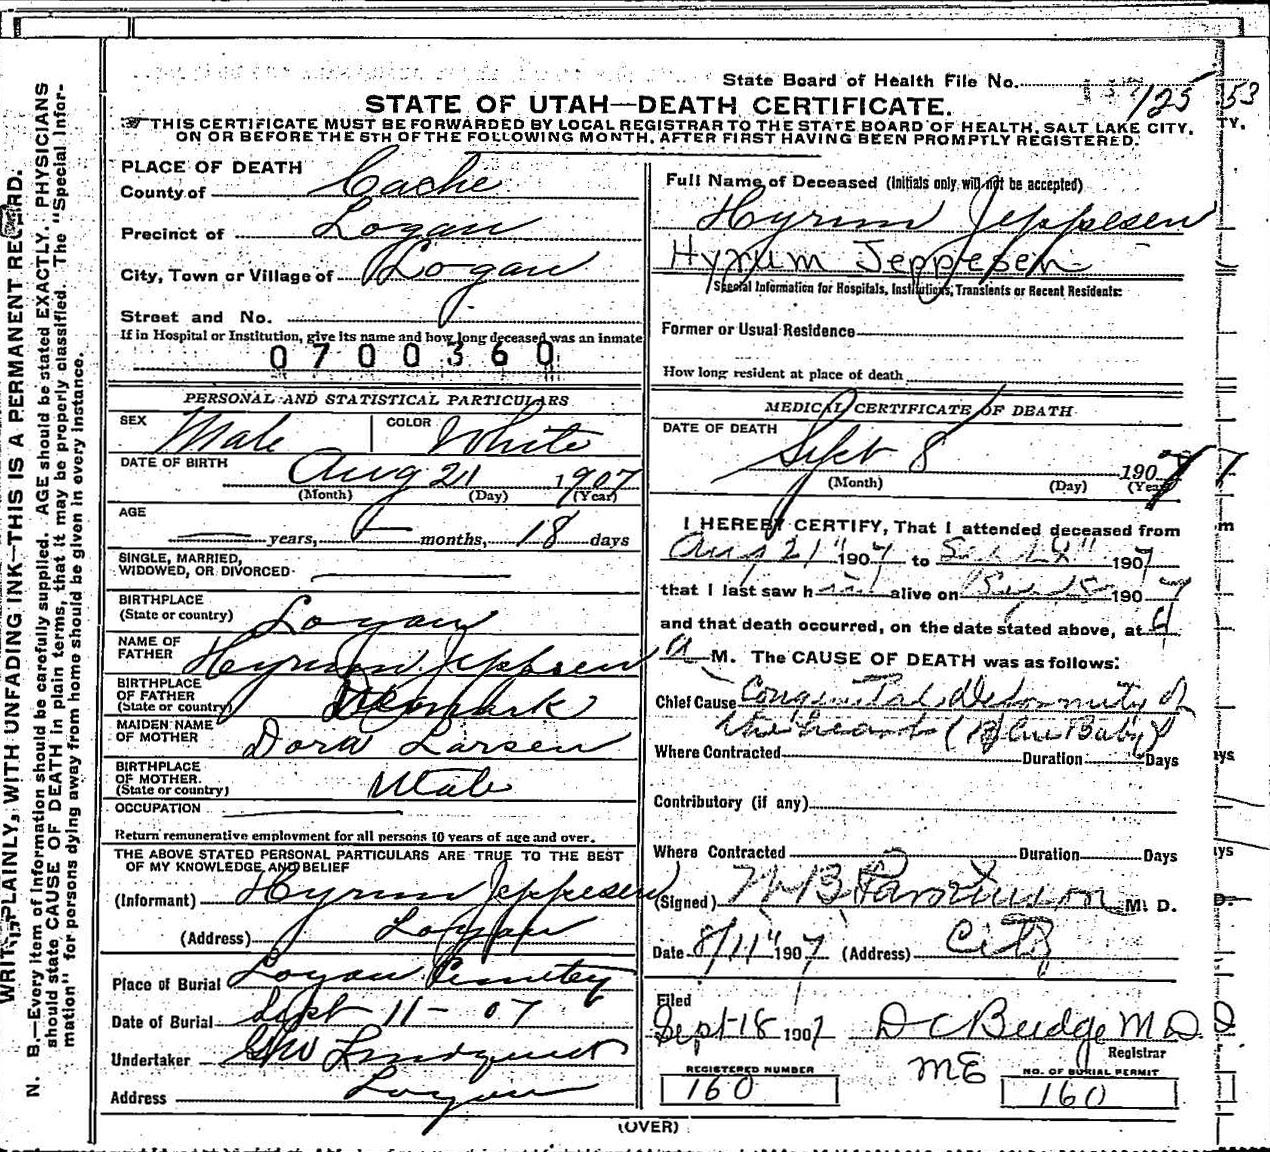 State Board of Health File No. 125 53
STATE OF UTAH—DEATH CERTIFICATE.
THIS CERTIFICATE MUST BE FORWARDED BY LOCAL REGISTRAR TO THE STATE BOARD OF HEALTH, SALT LAKE CITY, TY.
ON OR BEFORE THE 5TH OF THE FOLLOWING MONTH, AFTER FIRST HAVING BEEN PROMPTLY REGISTERED.
PLACE OF DEATH
County of Cache
Precinct of Logan
City, Town or Village of Logan
Street and No.
If in Hospital or Institution, give its name and how long deceased was an inmate
0700360
PERSONAL AND STATISTICAL PARTICULARS
SEX Male COLOR White
DATE OF BIRTH Aug 21 1907
(Month) (Day) (Year)
AGE
years, months, 18 days
SINGLE, MARRIED,
WIDOWED, OR DIVORCED
BIRTHPLACE
(State or country) Logan
NAME OF
FATHER Hyrum Jeppesen
BIRTHPLACE
OF FATHER
(State or country) Denmark
MAIDEN NAME
OF MOTHER Dora Larsen
BIRTHPLACE
OF MOTHER.
(State or country) Utah
OCCUPATION
Return remunerative employment for all persons 10 years of age and over.
THE ABOVE STATED PERSONAL PARTICULARS ARE TRUE TO THE BEST
OF MY KNOWLEDGE AND BELIEF
(Informant) Hyrum Jeppesen
(Address) Logan
Place of Burial Logan Cemetey
Date of Burial Sept 11 - 07
Undertaker Lindquist
Address Logan
Full Name of Deceased (Initials only will not be accepted)
Hyrum Jeppesen
Hyrum Jeppesen
Special Information for Hospitals, Institutions, Transients or Recent Residents:
Former or Usual Residence
How long resident at place of death
MEDICAL CERTIFICATE OF DEATH
DATE OF DEATH
Sept 8 1907 7
(Month) (Day) (Year)
I HEREBY CERTIFY, That I attended deceased from m
Aug 21" 1907 to Sept 8" 1907
that I last saw him alive on 1907
and that death occurred, on the date stated above, at 4
a M. The CAUSE OF DEATH was as follows:
Chief Cause Congenital deformity of
the heart (Blue Baby)
Where Contracted Duration Days ys
Contributory (if any)
Where Contracted Duration Days ys
(Signed) M. D. D.
Date 8/11" 1907 (Address) City
Filed
Sept 18 1907 D C Budge M D D
Registrar
ME
REGISTERED NUMBER
160
NO. OF BURIAL PERMIT
160
(OVER)
WRITE PLAINLY, WITH UNFADING INK—THIS IS A PERMANENT RECORD.
N. B.—Every item of Information should be carefully supplied. AGE should be stated EXACTLY. PHYSICIANS
should state CAUSE OF DEATH in plain terms, that it may be properly classified. The "Special Infor-
mation" for persons dying away from home should be given in every instance.